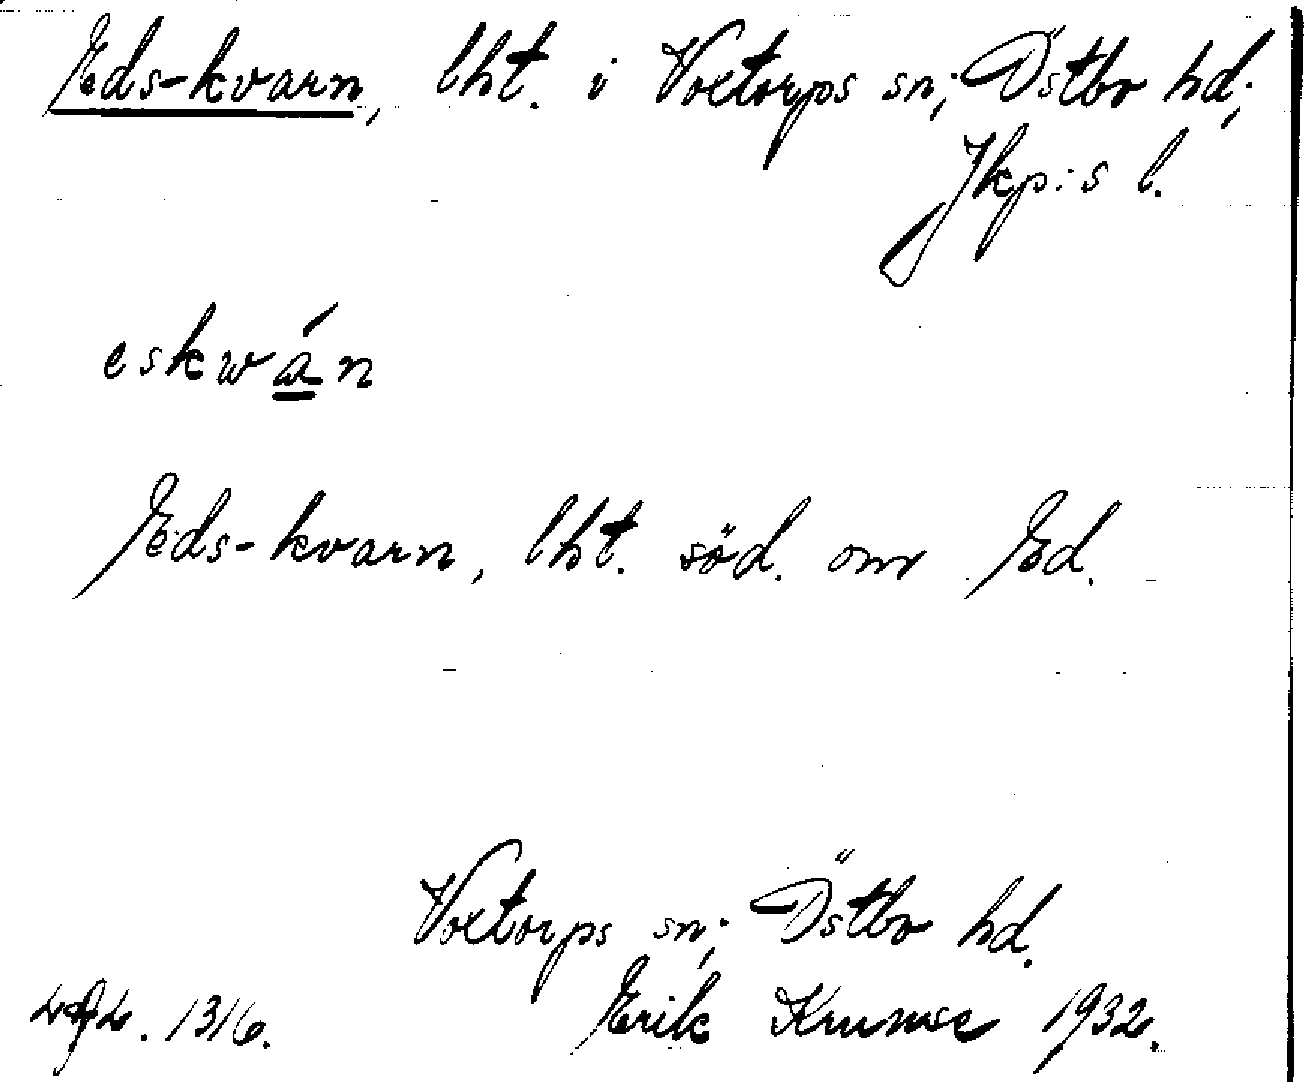 Eds-kvarn, lht. i Voxtorps sn; Östbo hd;
Jkp:s l.
eskwán
Eds-kvarn, lht. söd. om Ed.
Voxtorps sn; Östbo hd.
1316. Erik Krumse 1932.